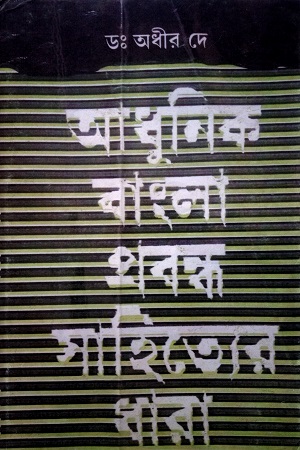 ডঃ অধীর দে
আধুনিক
বাংলা
প্রবন্ধ
সাহিত্যের
ধারা